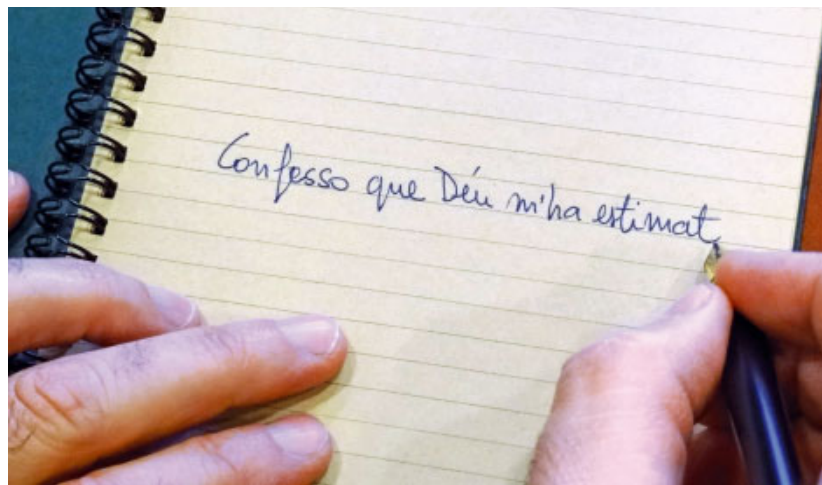 Confesso que Déu m'ha estimat